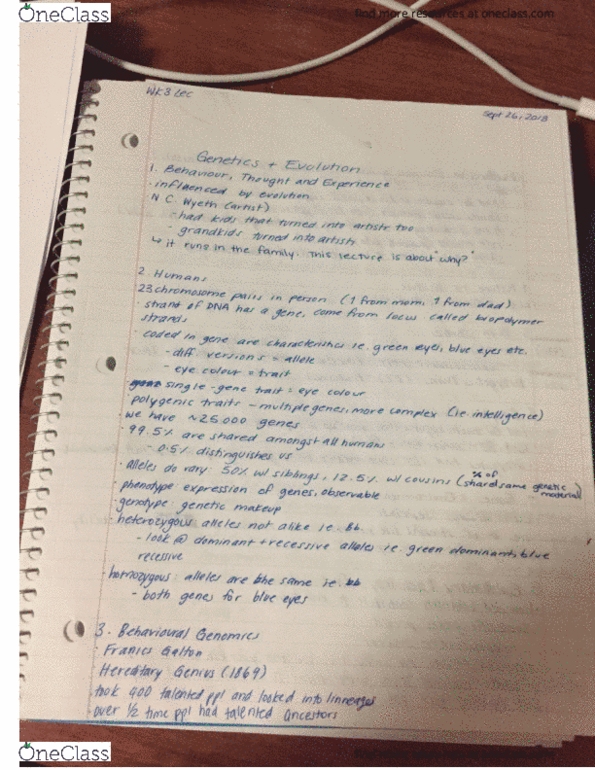 OneClass
find more resources at oneclass.com
WK 3 Lec
Sept 26, 2018
Genetics + Evolution
1. Behaviour, Thought and Experience
· influenced by evolution
N.C. Wyeth (artist)
- had kids that turned into artists too
- grandkids turned into artists
↳ it runs in the family. This lecture is about "why?"
2. Humans
23 chromosome pairs in person (1 from mom, 1 from dad)
· strant of DNA has a gene, come from locus called biopolymer
strands
· coded in gene are characteristics ie. green eyes, blue eyes etc.
- diff. versions = allele
- eye colour = trait
single-gene trait = eye colour
· polygenic traits - multiple genes, more complex (ie. intelligence)
· we have ~25.000 genes
· 99.5% are shared amongst all humans
- 0.5% distinguishes us
· alleles do vary: 50% w/ siblings, 12.5% w/ cousins (% of shared same genetic material)
· phenotype expression of genes, observable
· genotype: genetic makeup
· heterozygous: alleles not alike ie. Bb.
- look @ dominant + recessive alleles ie. green dominant, blue
recessive
· homozygous: alleles are the same ie. bb
- both genes for blue eyes
3. Behavioural Genomics
· Francis Galton
Hereditary Genius (1869)
took 400 talented ppl and looked into lineages
over 1/2 time ppl had talented ancestors
OneClass